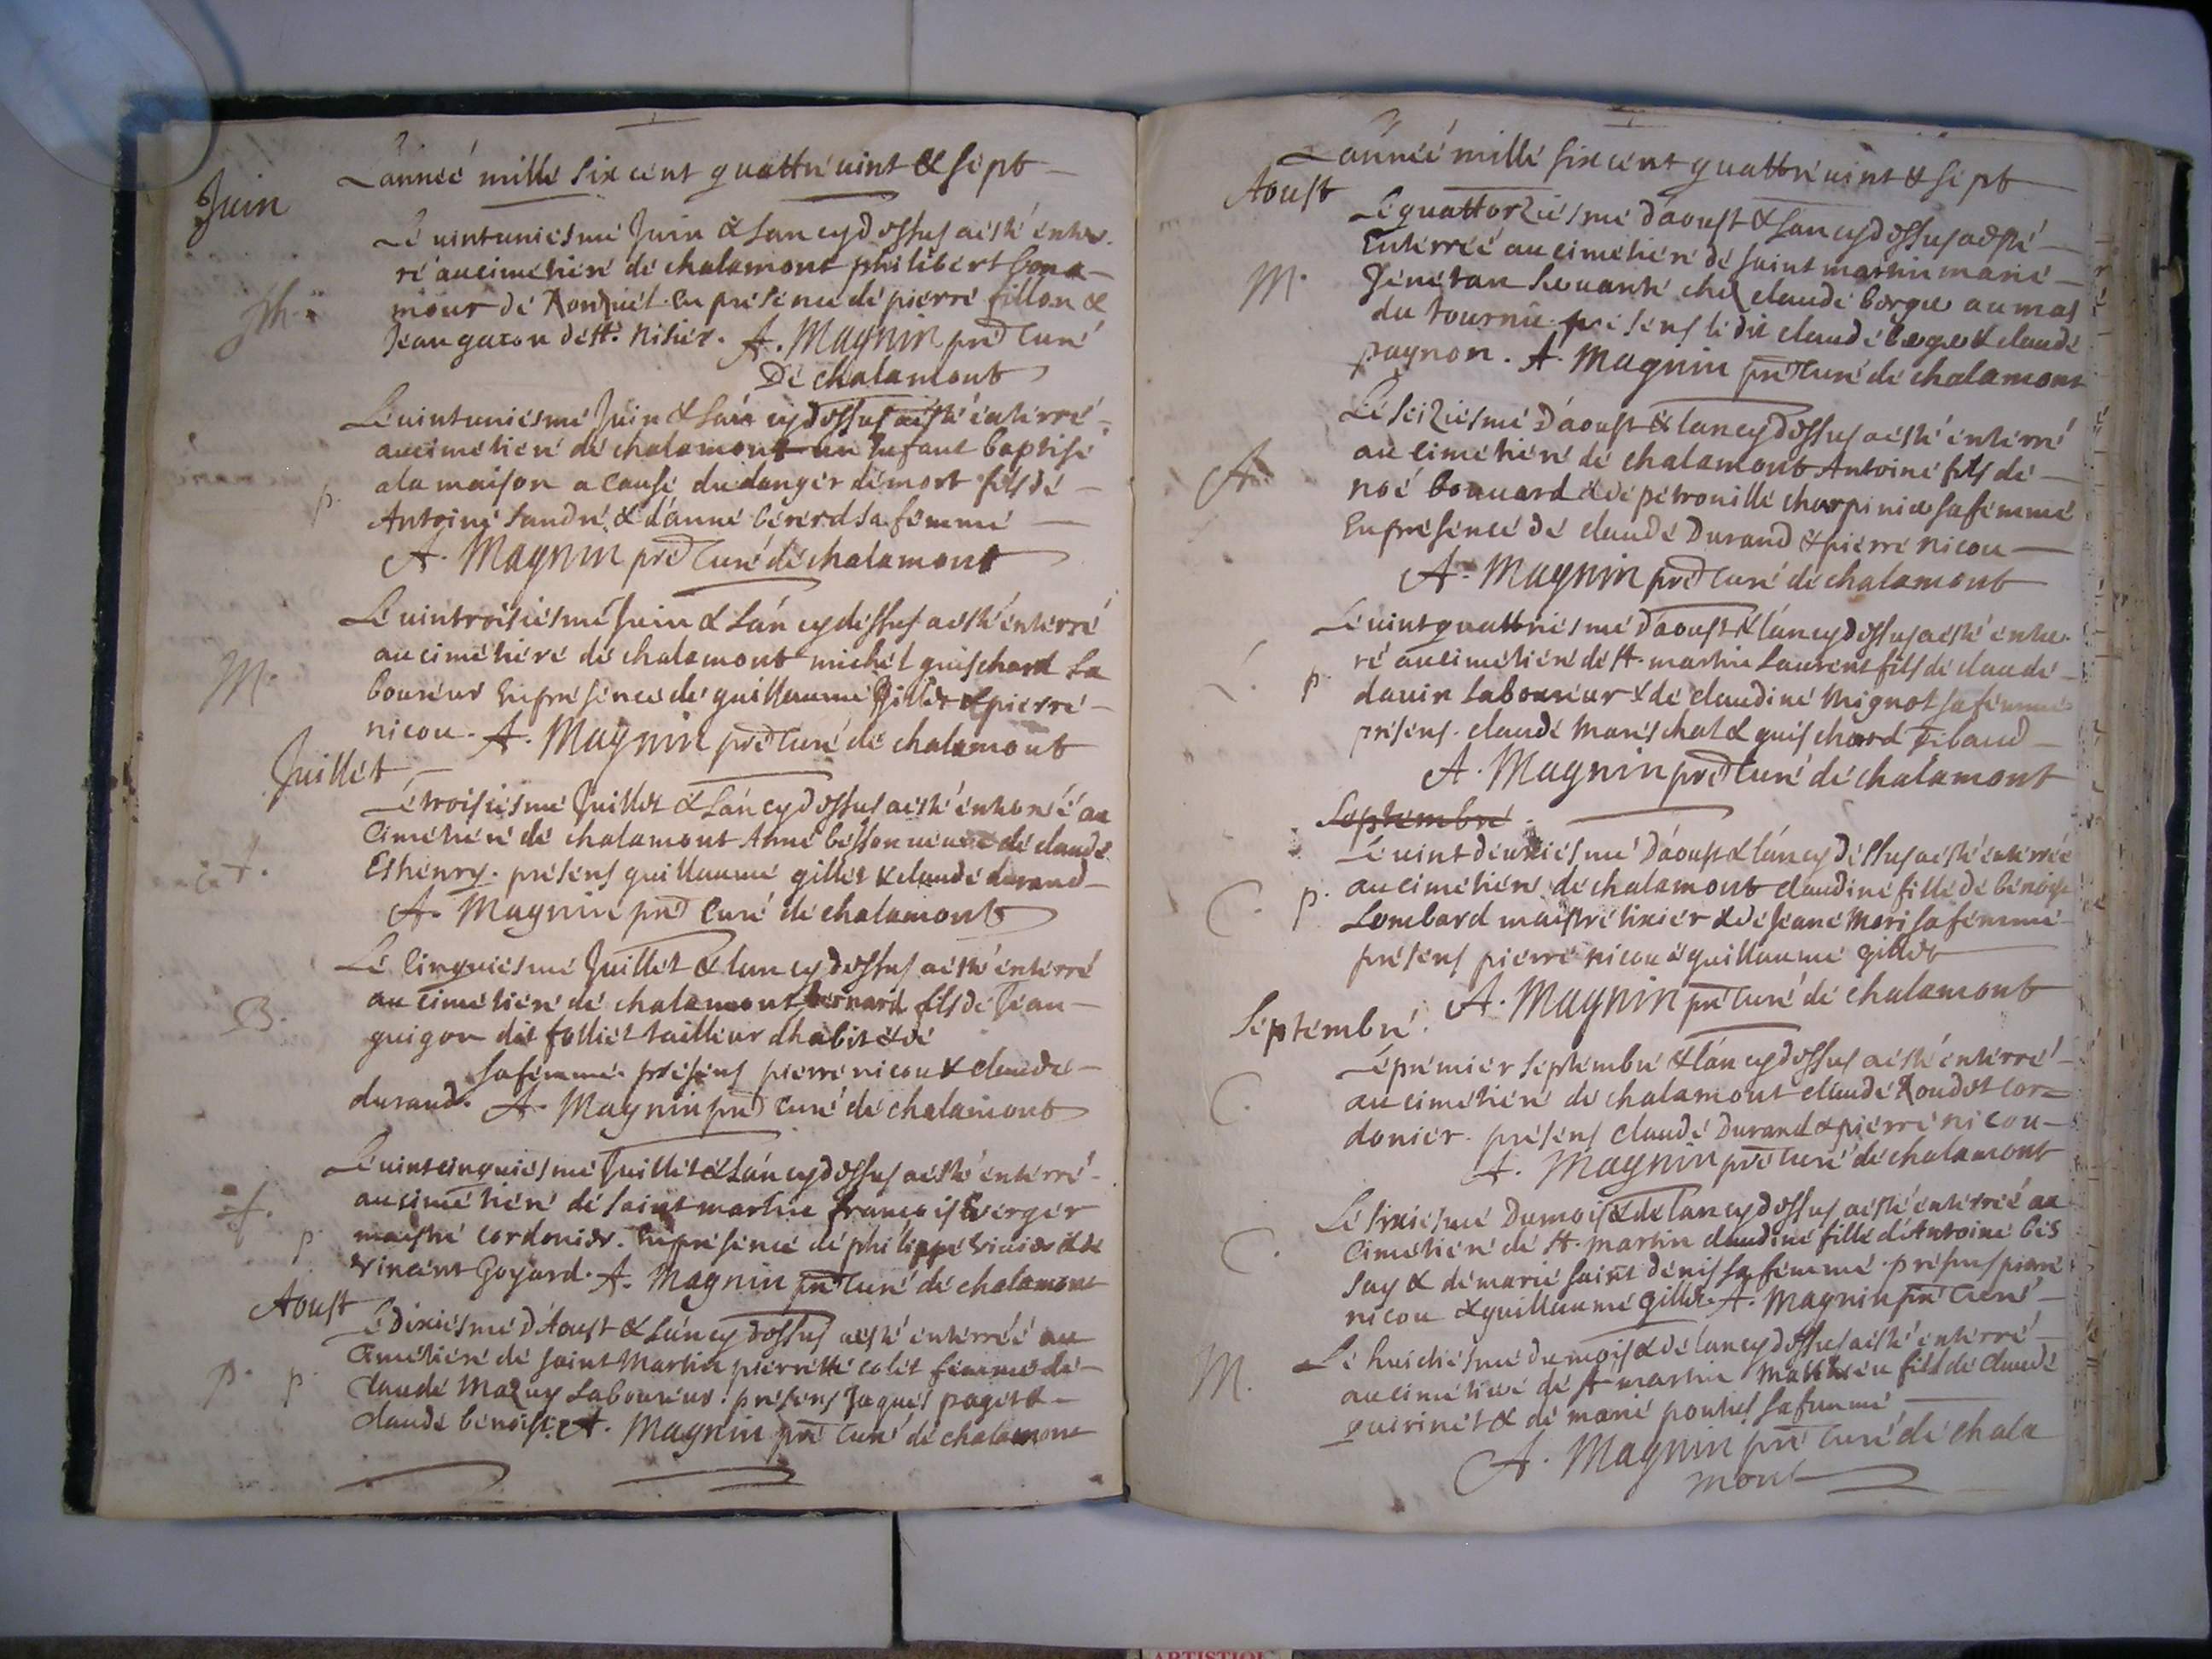 L'année mille six cent quattre vint & sept
Juin
Le vintuniesme Juin & l'an cydessus a esté enter-
ré au cimetiere de chalamont philibert bona-
mour de Ronzuel. En presence de pierre fillon &
Ph.
Jean gacon de St. Nisier. A. Magnin pre Curé
De chalamont
Le vintuniesme Juin & l'an cydessus a esté enterré
au cimetiere de chalamont un Enfant baptisé
a la maison a cause du danger de mort fils de
p.
Antoine Sandre & d'anne bererd sa femme
A. Magnin pre Curé de chalamont
Le vintroisiesme Juin & L'an cydessus a esté enterré
au cimetiere de chalamont michel guischard La
M.
boureur En presence de guillaume Gillet & pierre
nicou. A. Magnin pre Curé de chalamont
Juillet
Le troisiesme Juillet & L'an cydessus a esté enterréé au
Cimetiere de chalamont Anne besson veuve de claude
A.
Esthenry. presens guillaume gillet & claude durand
A. Magnin pre Curé de chalamont
Le Cinquiesme Juillet & l'an cydessus a esté enterré
au cimetiere de chalamont bernard fils de Jean
B.
guigon dit folliet tailleur dhabits & de
sa femme. presens pierre nicou & claude
durand. A. Magnin pre Curé de chalamont
Le vintcinquiesme Juillet & L'an cydessus a esté enterré
au cimetiere de saint martin françois Verger
f.
p.
maistre cordonier. En presence de philippe & de
vincent Goyard. A. Magnin pre Curé de chalamont
Aoust
Le Dixiesme D'Aoust & L'an cydessus a esté enterréé au
Cimetiere de saint Martin pierrette colet femme de
p. p.
claude Mazuy Laboureur. presens Jaques paget &
claude benoist. A. Magnin pre Curé de chalamont
L'année mille six cent quattre vint & sept
Aoust
Le quattorziesme d'aoust & l'an cydessus a esté
Enterréé au cimetiere de saint martin marie
M.
Jenetan servante chez claude berger au mas
du tournu. presens ledit claude berger & claude
pagnon. A. Magnin pre Curé de chalamont
Le seiziesme D'aoust & l'an cydessus a esté enterré
au cimetiere de chalamont Antoine fils de
A.
noé bouvard & de petronille charpinier sa femme
En presence de claude Durand & pierre nicou
A. Magnin pre Curé de chalamont
Le vintquattriesme d'aoust & l'an cydessus a esté enter-
ré au cimetiere de St. martin Laurent fils de claude
L. p.
davin laboureur & de claudine Mignot sa femme
presens. claude Mareschal & guischard Tibaud
A. Magnin pre Curé de chalamont
Septembre.
Le vintdeuxiesme D'aoust & l'an cydessus a esté enterrée
au cimetiere de chalamont claudine fille de benoist
C. p.
p.
Lombard maistre tixier & de Jeane Mori sa femme
presens pierre nicou & guillaume gillet
A. Magnin pre Curé de chalamont
Septembre.
Le premier septembre & l'an cydessus a esté enterré
au cimetiere de chalamont claude Roudet cor=
C.
donier. presens Claude Durand & pierre nicou
A. Magnin pre Curé de chalamont
Le sixiesme Du mois & de l'an cydessus a esté enterréé au
Cimetiere de St. martin claudine fille d'Antoine bes
C.
say & de marie saint denis sa femme. presens pierre
nicou & guillaume gillet. A. Magnin pre Curé
Le huictiesme du mois & de l'an cydessus a esté enterré
M.
au cimetiere de St martin Matthieu fils de claude
guerinet & de marie sa femme
A. Magnin pre Curé de chala
mont